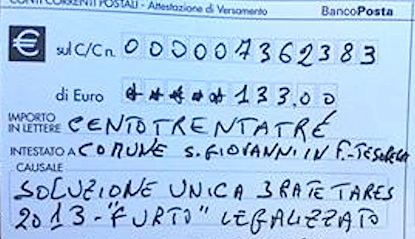 CONTI CORRENTI POSTALI - Attestazione di Versamento BancoPosta
€ sul C/C n. 000007362383
di Euro ***** 133,00
IMPORTO IN LETTERE CENTOTRENTATRÉ
INTESTATO A COMUNE S. GIOVANNI IN F.
CAUSALE
SOLUZIONE UNICA 3 RATE TARES
2013 - "FURTO" LEGALIZZATO